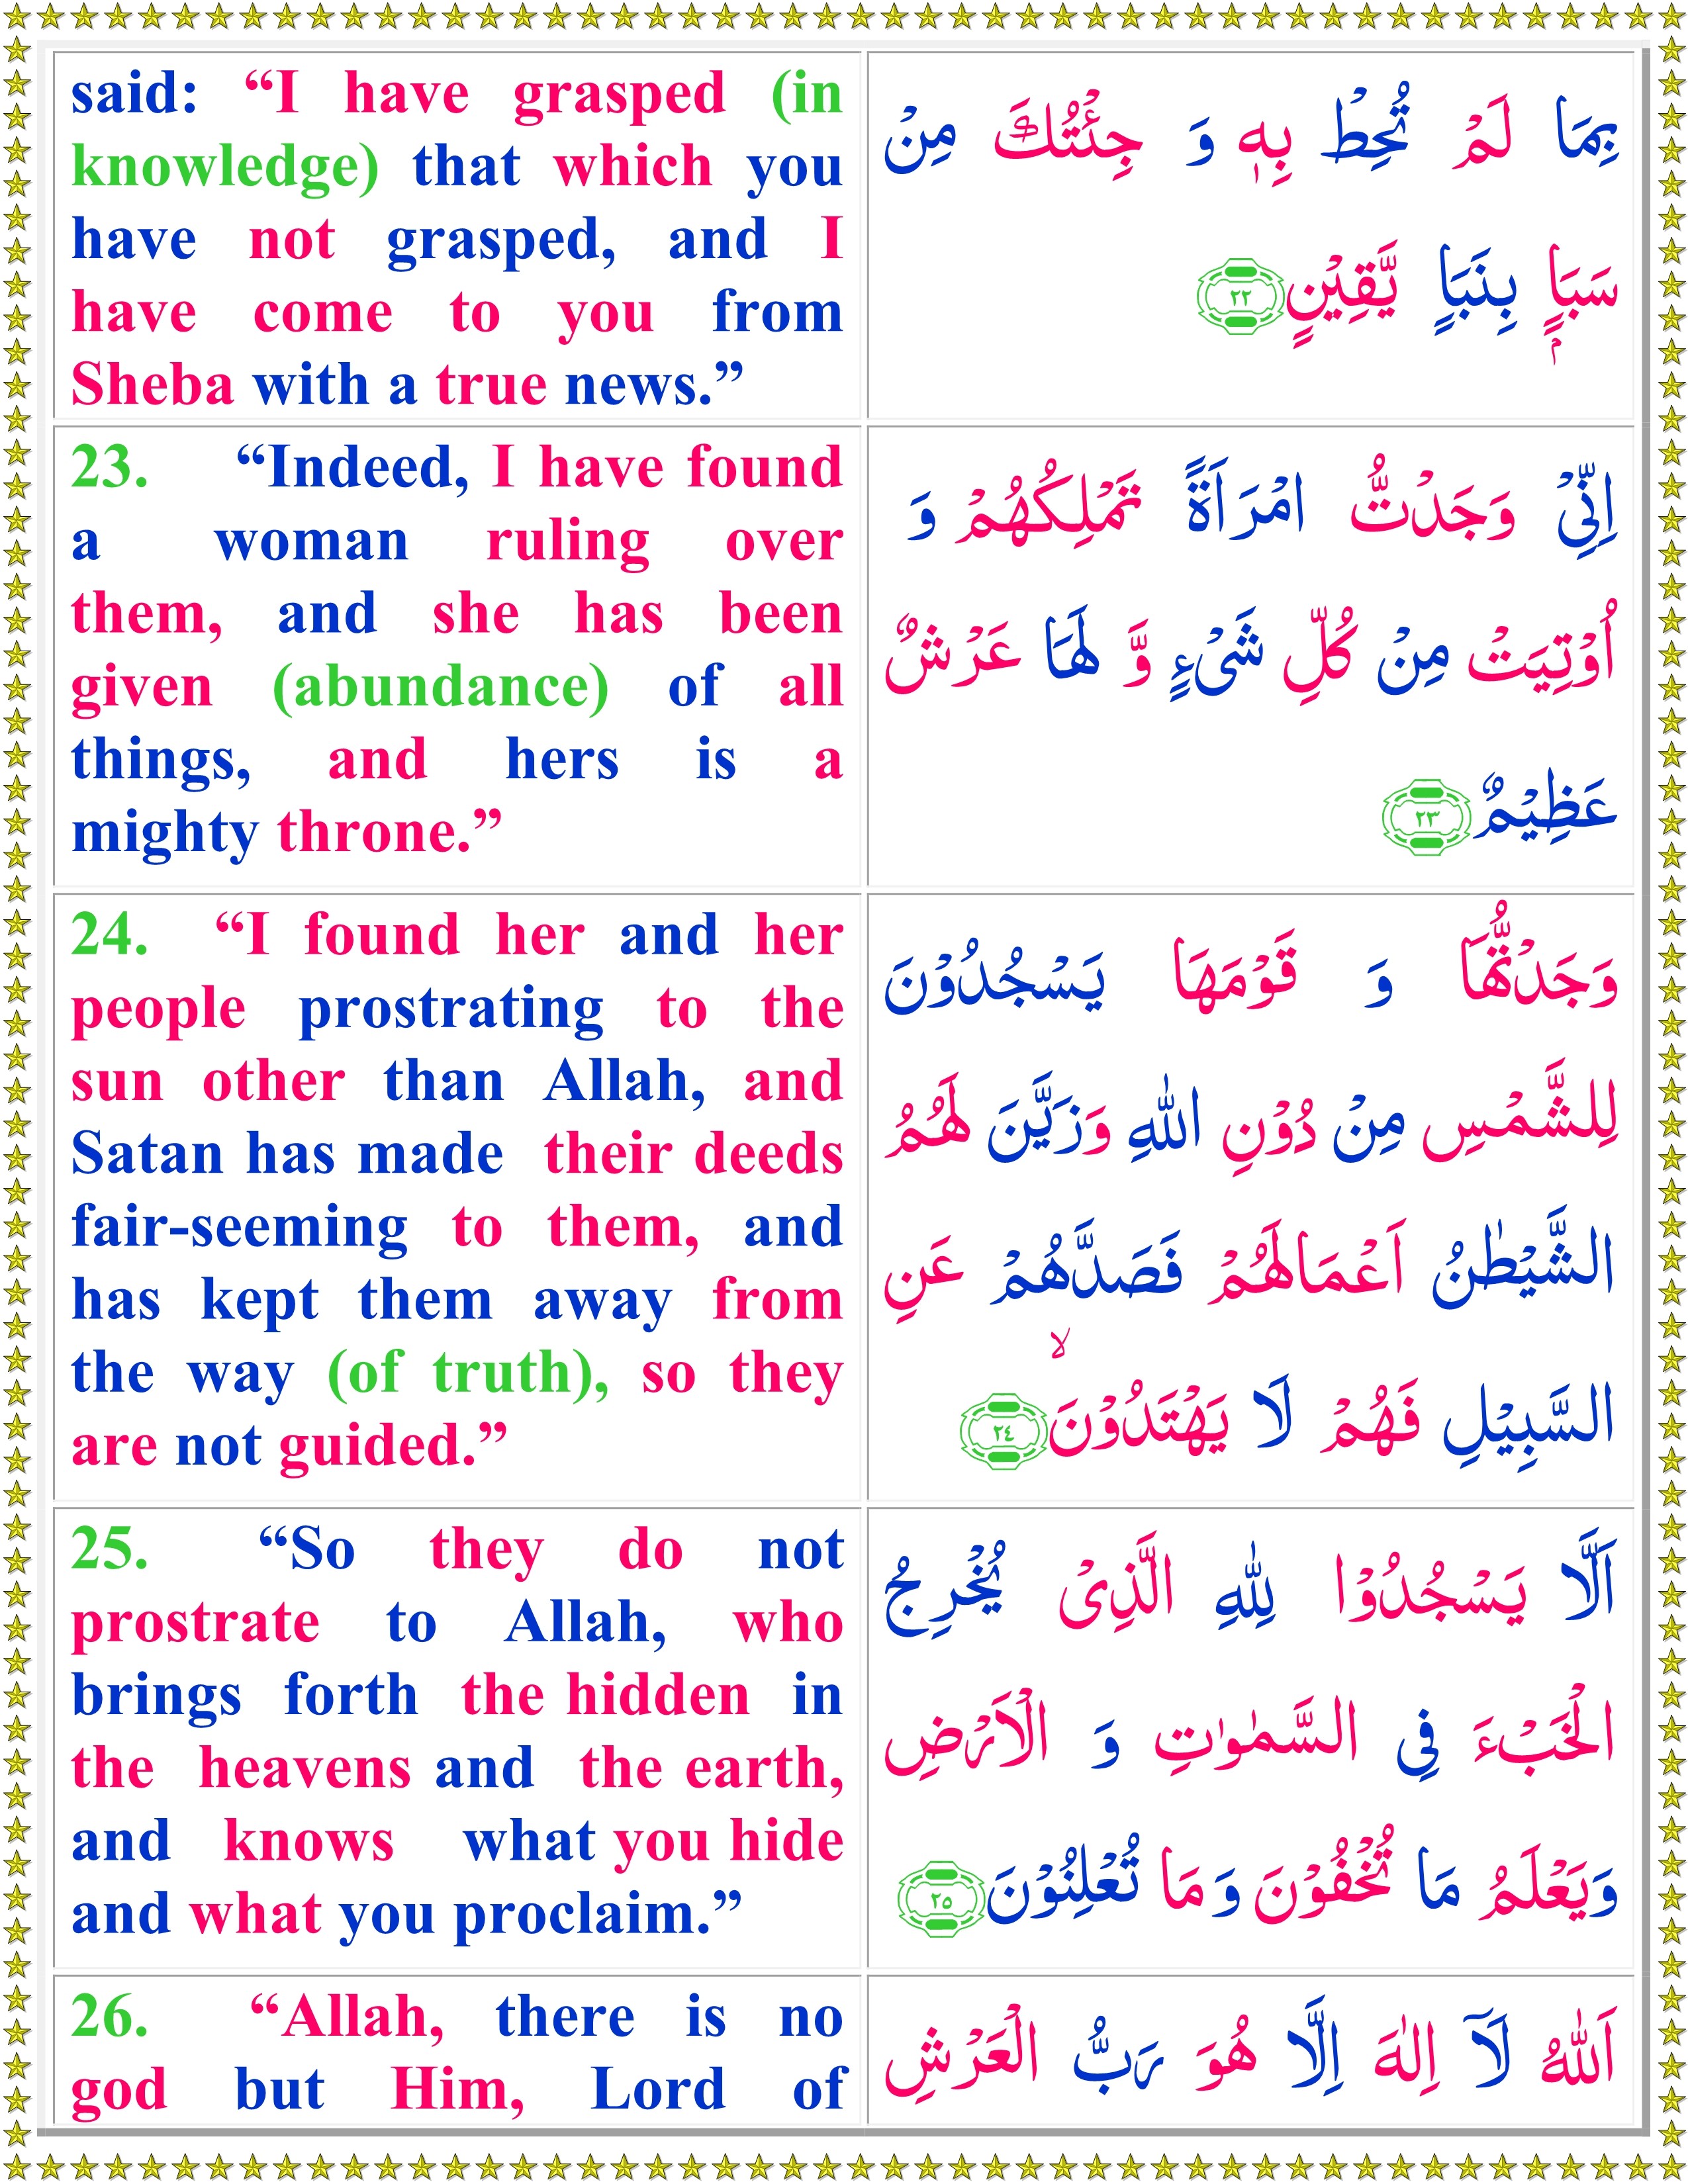 said: “I have grasped (in
knowledge) that which you
have not grasped, and I
have come to you from
Sheba with a true news.”
بِمَا لَمْ تُحِطْ بِهٖ وَ جِئْتُكَ مِنْ
سَبَاٍۭ بِنَبَاٍ يَّقِيْنٍ ٢٢
23. “Indeed, I have found
a woman ruling over
them, and she has been
given (abundance) of all
things, and hers is a
mighty throne.”
اِنِّيْ وَجَدْتُّ امْرَاَةً تَمْلِكُهُمْ وَ
اُوْتِيَتْ مِنْ كُلِّ شَيْءٍ وَّ لَهَا عَرْشٌ
عَظِيْمٌ ٢٣
24. “I found her and her
people prostrating to the
sun other than Allah, and
Satan has made their deeds
fair-seeming to them, and
has kept them away from
the way (of truth), so they
are not guided.”
وَجَدْتُّهَا وَ قَوْمَهَا يَسْجُدُوْنَ
لِلشَّمْسِ مِنْ دُوْنِ اللّٰهِ وَزَيَّنَ لَهُمُ
الشَّيْطٰنُ اَعْمَالَهُمْ فَصَدَّهُمْ عَنِ
السَّبِيْلِ فَهُمْ لَا يَهْتَدُوْنَۙ ٢٤
25. “So they do not
prostrate to Allah, who
brings forth the hidden in
the heavens and the earth,
and knows what you hide
and what you proclaim.”
اَلَّا يَسْجُدُوْا لِلّٰهِ الَّذِيْ يُخْرِجُ
الْخَبْءَ فِي السَّمٰوٰتِ وَ الْاَرْضِ
وَيَعْلَمُ مَا تُخْفُوْنَ وَمَا تُعْلِنُوْنَ ٢٥
26. “Allah, there is no
god but Him, Lord of
اَللّٰهُ لَآ اِلٰهَ اِلَّا هُوَ رَبُّ الْعَرْشِ